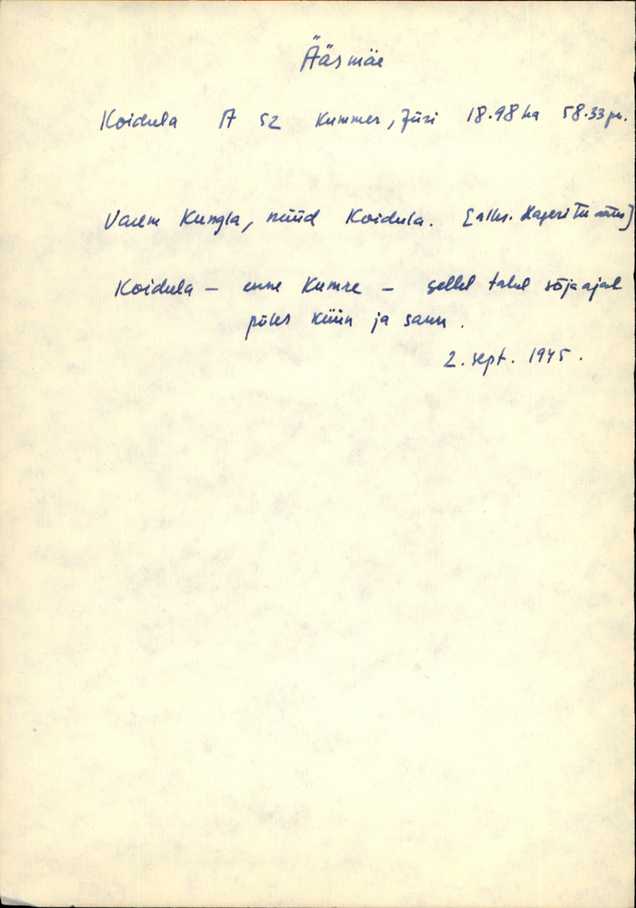 Ääsmäe
Koidula A 52 Kummer, Jüri 18.98 ha 58.33 pr.
Varem Kungla, nüüd Koidula.
Koidula – enne Kumre – sellel talul sõja ajal
põles küün ja saun.
2. sept. 1945.